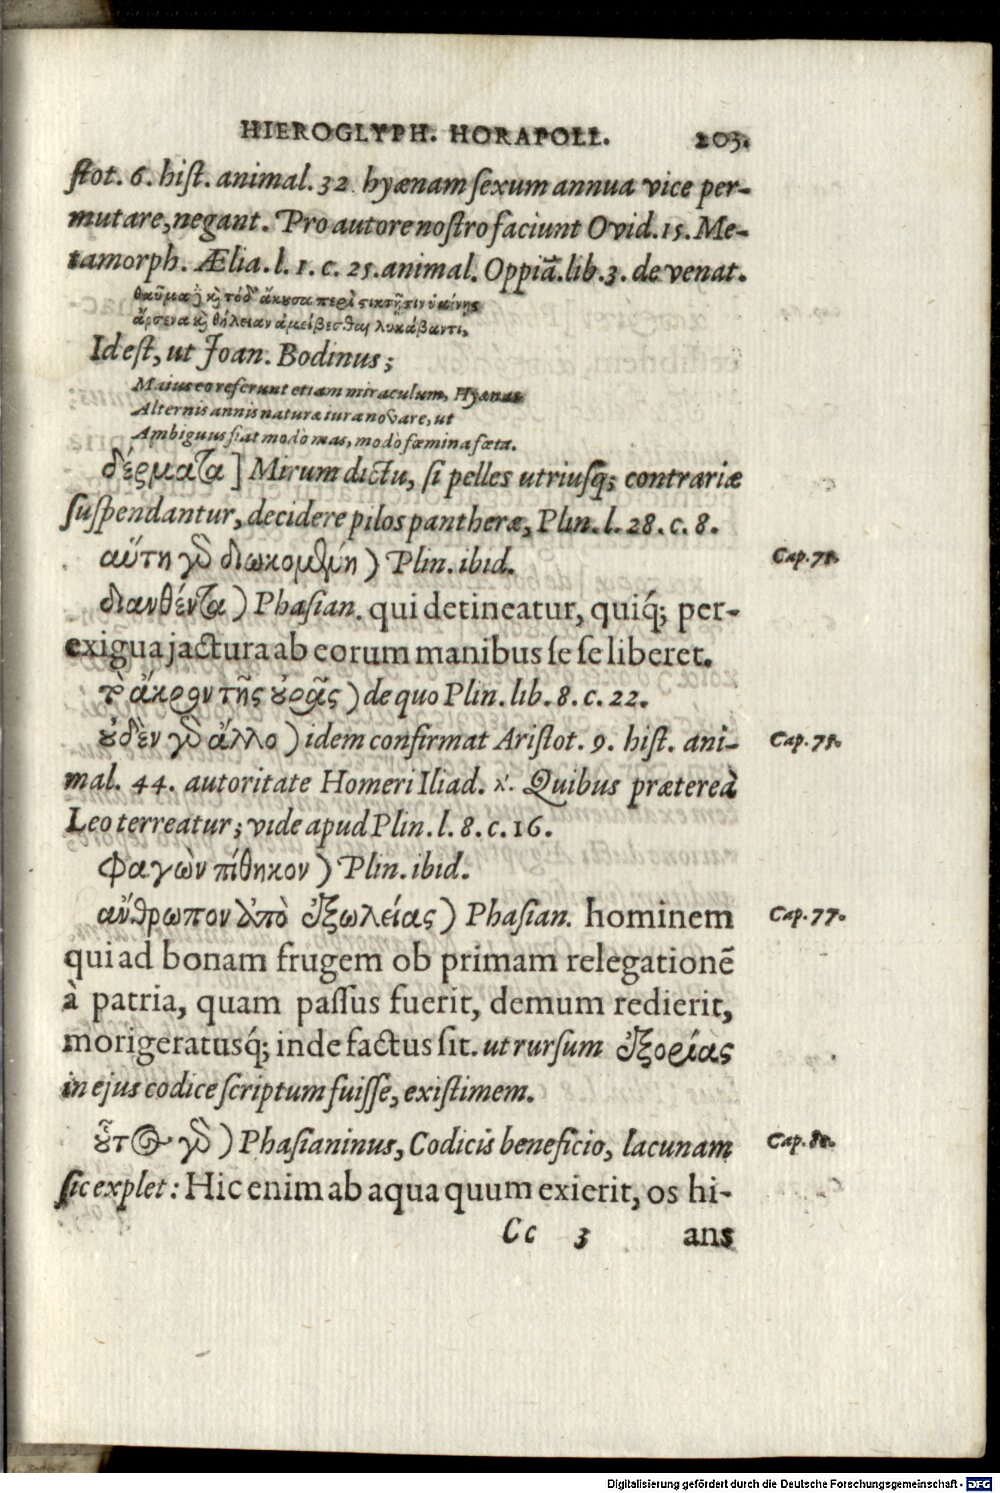 HIEROGLYPH. HORAPOLL. 203.
ſtot. 6. hiſt. animal. 32. hyænam ſexum annua vice per-
mutare, negant. Pro autore noſtro faciunt Ovid. 15. Me-
tamorph. Ælia. l. 1. c. 25. animal. Oppiã. lib. 3. de venat.
θαῦμα ϳ κỳ τόδ' ἄκουσα περὶ στικτῇσιν ὑαίνης
ἄρσενα κỳ θήλειαν ἀμείβεσθαι λυκάβαντι,
Id eſt, ut Joan. Bodinus;
Maius eo referunt etiam miraculum, Hyænas
Alternis annis naturæ jura novare, ut
Ambiguus fiat modò mas, modò fœmina fœta.
δέρματα] Mirum dictu, ſi pelles utriuſq; contrariæ
ſuſpendantur, decidere pilos pantheræ, Plin. l. 28. c. 8.
αὕτη γὸ διωκομένη) Plin. ibid. Cap. 71.
διανθέντα) Phaſian. qui detineatur, quiq́; per-
exigua jactura ab eorum manibus ſe ſe liberet.
τὸ ἄκρον τῆς ȣ̓ρᾶς) de quo Plin. lib. 8. c. 22.
ȣ̓δὲν γὸ ἄλλο) idem confirmat Ariſtot. 9. hiſt. ani- Cap. 75.
mal. 44. autoritate Homeri Iliad. λ'. Quibus prætereà
Leo terreatur; vide apud Plin. l. 8. c. 16.
φαγὼν πίθηκον) Plin. ibid.
ἄνθρωπον ἀπὸ ἐξωλείας) Phaſian. hominem Cap. 77.
qui ad bonam frugem ob primam relegationẽ
à patria, quam paſſus fuerit, demum redierit,
morigeratusq́; inde factus ſit. ut rurſum ἐξορίας
in ejus codice ſcriptum fuiſſe, exiſtimem.
ȣ̔͂τος γὸ) Phaſianinus, Codicis beneficio, lacunam Cap. 80.
ſic explet: Hic enim ab aqua quum exierit, os hi-
Cc 3 ans
Digitalisierung gefördert durch die Deutsche Forschungsgemeinschaft - DFG